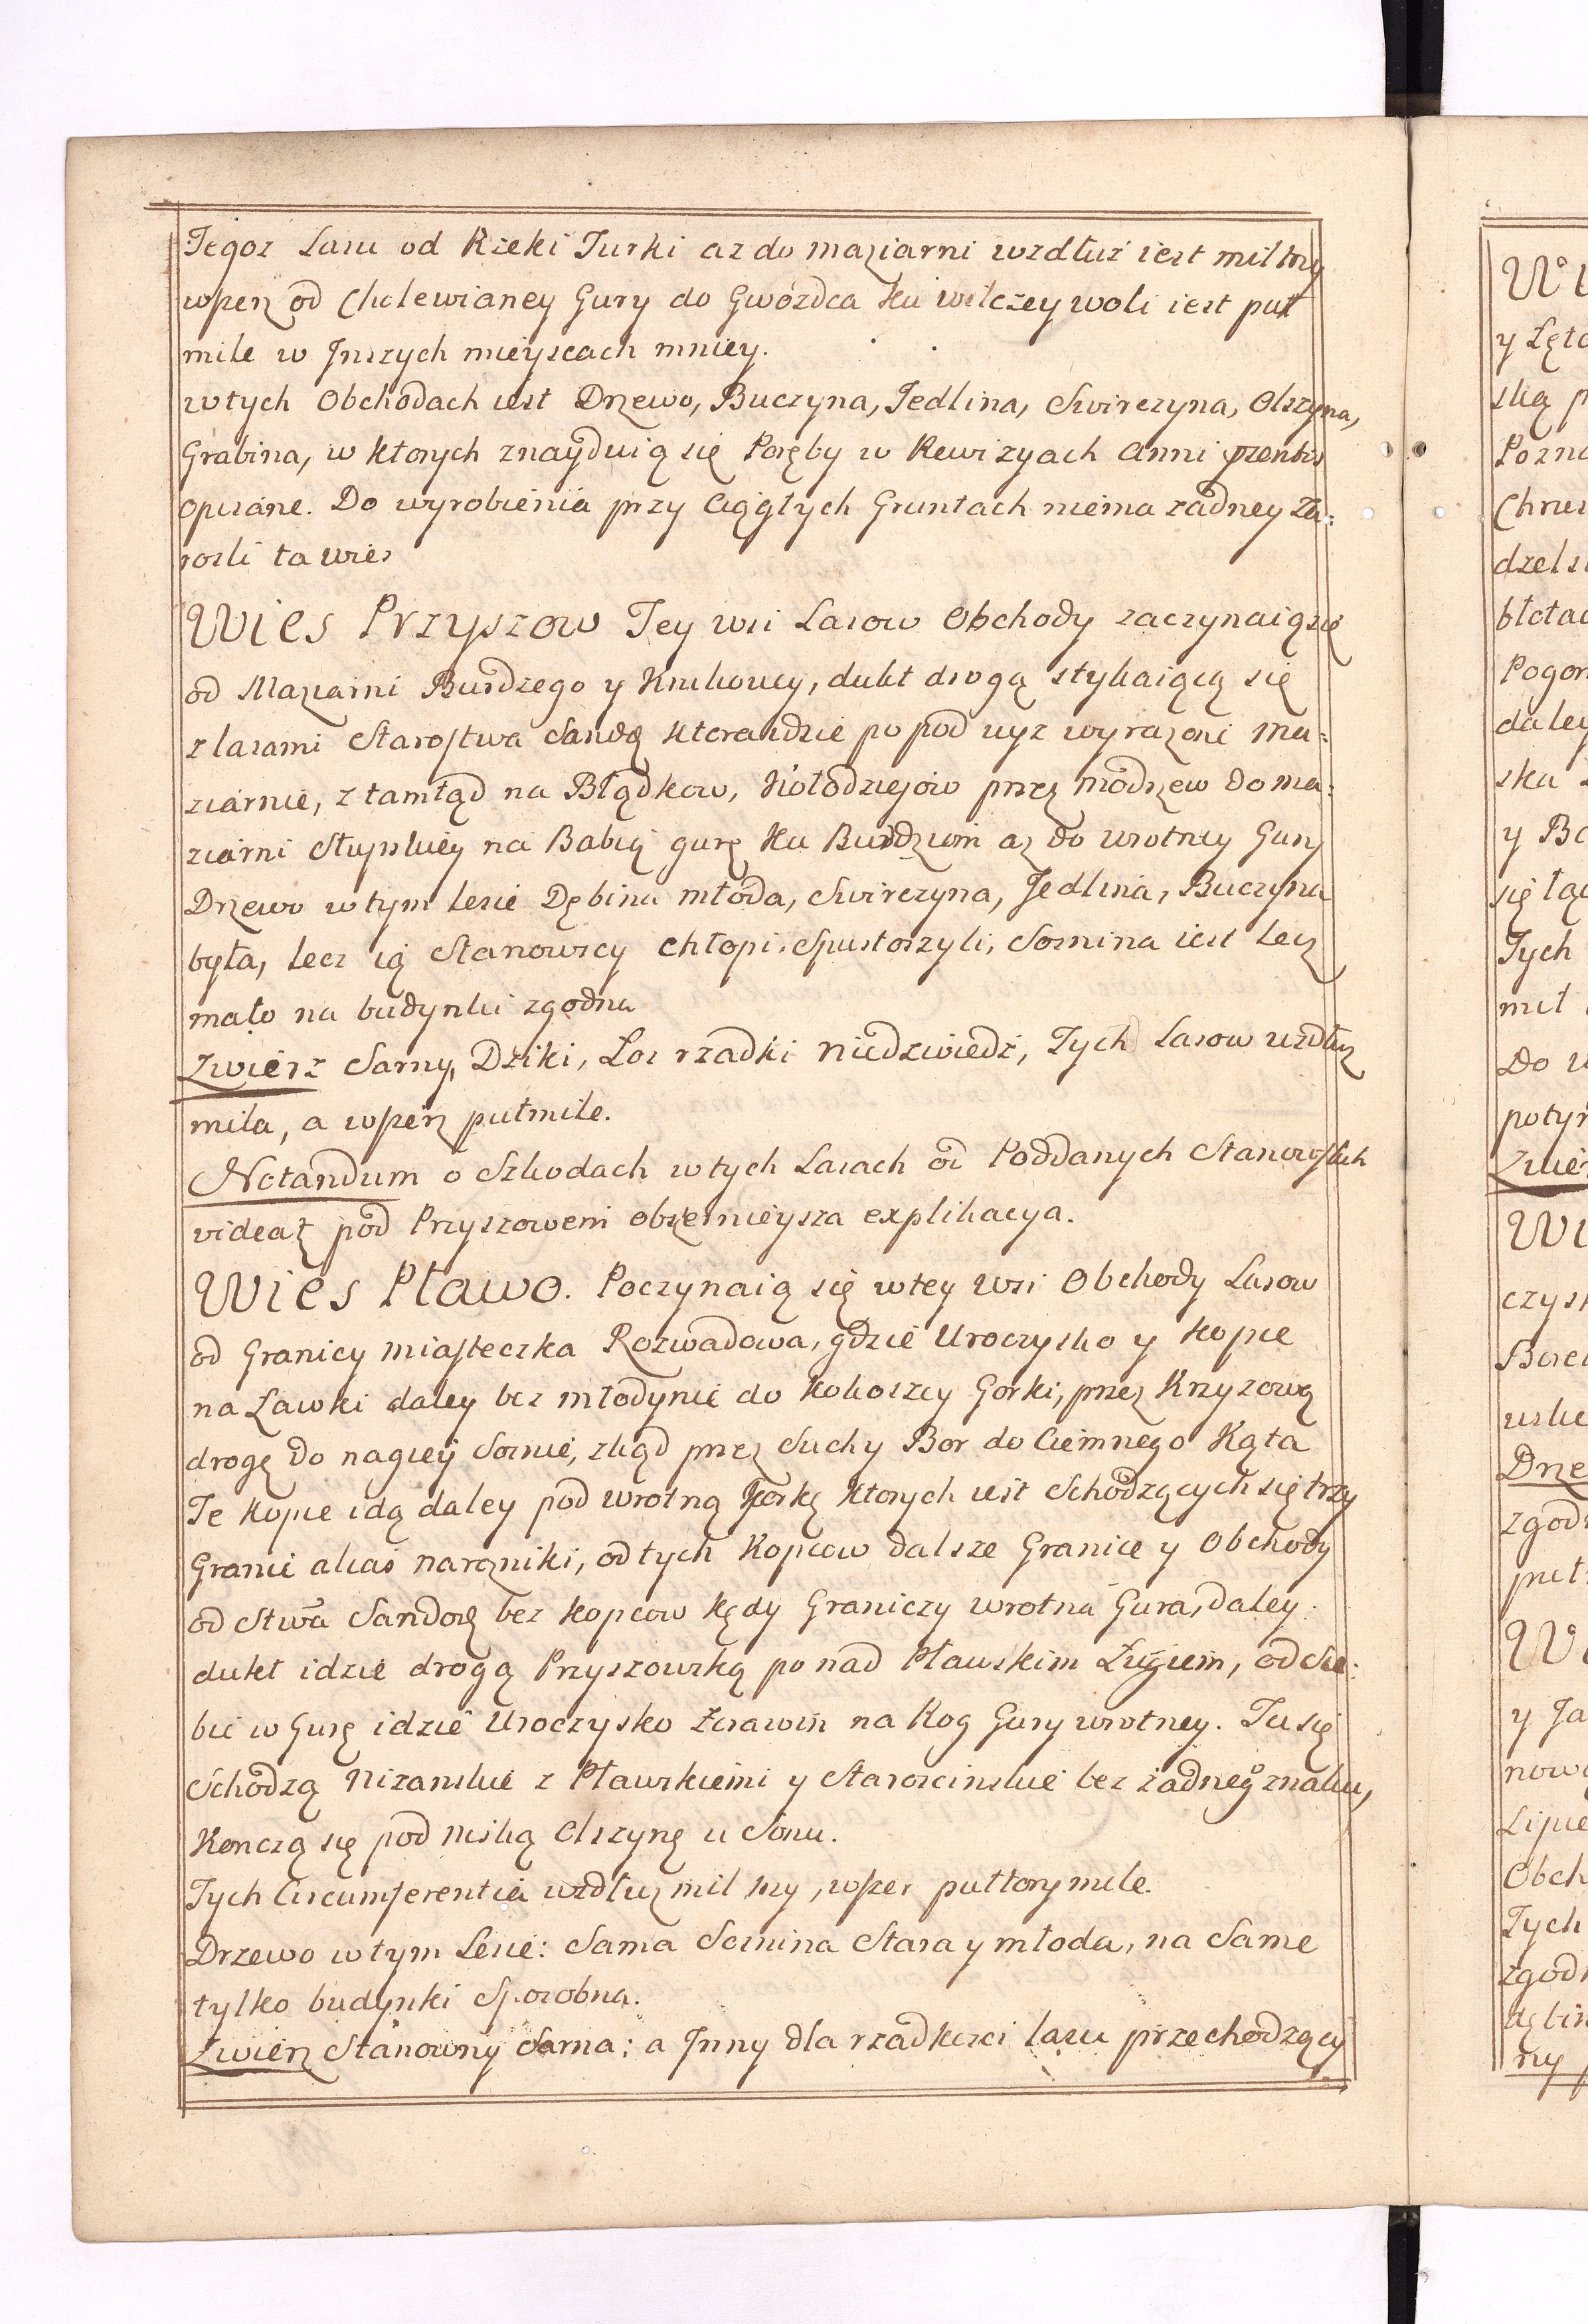 Tegoz Lasu od Rzeki Turki az do maziarni wzdłuż iest mil trzy
wperz od Cholewianey Gury do Gwózdca ku wilczey woli iest puł
mile w Jnszych mieyscach mniey.
wtych Obchodach iest Drzewo, Buczyna, Jedlina, Swirczyna, Olszyna,
Grabina, w ktorych znayduią się Poręby w Rewizyach Anni
opisane. Do wyrobienia przy Ciągłych Gruntach niema zadney Za:
rosli ta wies
Wies Przyszow Tey wsi Lasow Obchody zaczynaią się
od Maziarni Burdzego y Krukowey, dukt drogą stykaiącą się
z lasami Starostwa Sando ktora idzie popod wyz wyrazone Ma:
ziarnie, z tamtąd na Błądkow, Kołodziejow przez modrzew do ma:
ziarni Słupskiey na Babią gurę ku Burdziom az do wrotney Gury
Drzewo wtym lesie Dębina młoda, Swirczyna, Jedlina, Buczyna
była, lecz ią Stanowscy Chłopi Spustoszyli, Sosnina iest lecz
mało na budynki zgodna
Zwierz Sarny, Dziki, Los rzadki niedzwiedz, Tych Lasow wzdłuz
mila, a wperz pułmile.
Notandum o Szkodach wtych Lasach od Poddanych Stanowskich
videatz pod Przyszowem obszernieysza explikacya.
Wies Pławo. Poczynaią się wtey wsi Obchody Lasow
od Granicy miasteczka Rozwadowa, gdzie Uroczysko y kopie
na Ławki daley bez młodynie do Kokoszey Gorki, przez Krzyzową
drogę do nagiey Sosnie, zkąd przez Suchy Bor do Ciemnego Kąta
Te kopce idą daley pod wrotną Gorkę ktorych iest Schodzących się trzy
Granic alias narozniki, od tych Kopcow dalsze Granice y Obchody
od Stwa Sando bez kopcow kędy Graniczy wrotna Gura, daley
dukt idzie drogą Przyszowską po nad Pławskim Ługiem, od Sie:
bie w Gurę idzie Uroczysko Zurawin na Rog Gury wrotney. Tu się
Schodzą Nizanskie z Pławskiemi y Staroscinskie bez żadnego znaku,
Konczą się pod niską Olszynę u Sonu.
Tych Circumferentia wzdłuz mil trzy, wperz pułtory mile.
Drzewo wtym Lesie: Sama Sosnina Stara y młoda, na Same
tylko budynki Sposobna.
Zwierz Stanowny Sarna; a Jnny dla rzadkosci lasu przechodzący